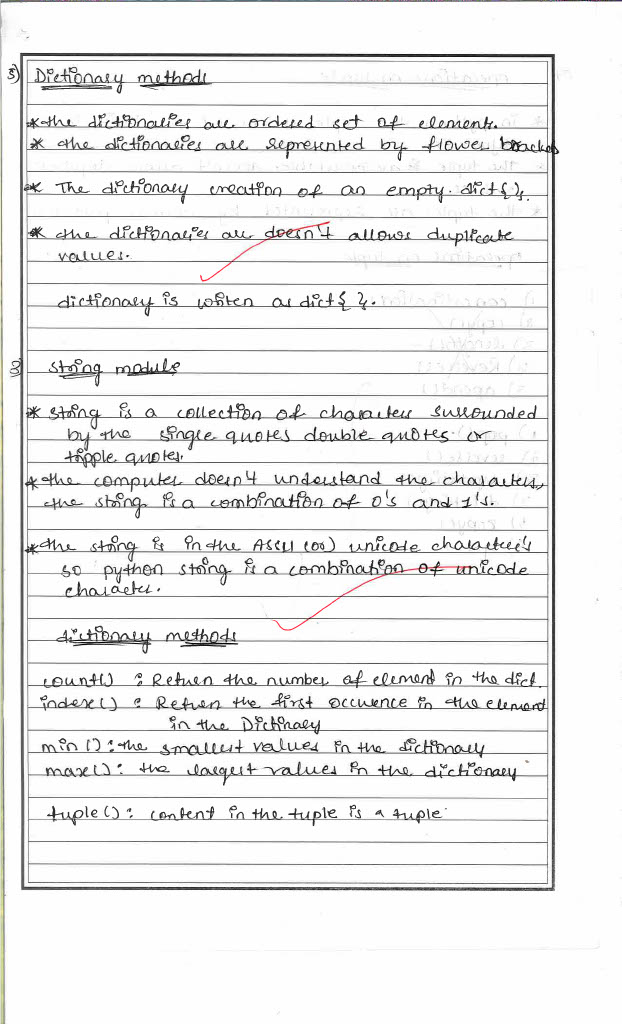 5) Dictionary methods
* the dictionaries are ordered set of elements.
* the dictionaries are represented by flower brackes
* The dictionary creation of an empty. dict{}.
* the dictionaries are doesn't allows duplicate
values.
dictionary is writen as dict{ }.
3) String module
* String is a collection of characters surrounded
by the single quotes double quotes or
tripple quotes.
* the computer doesn't understand the characters,
the string is a combination of 0's and 1's.
* the string is in the ASCII (or) unicode character's
so python string is a combination of unicode
character.
dictionary methods
count() : Return the number of element in the dict.
index() : Return the first occurence in the element
in the Dictinary
min() : the smallest values in the dictionary
max() : the largest values in the dictionary
tuple() : content in the tuple is a tuple